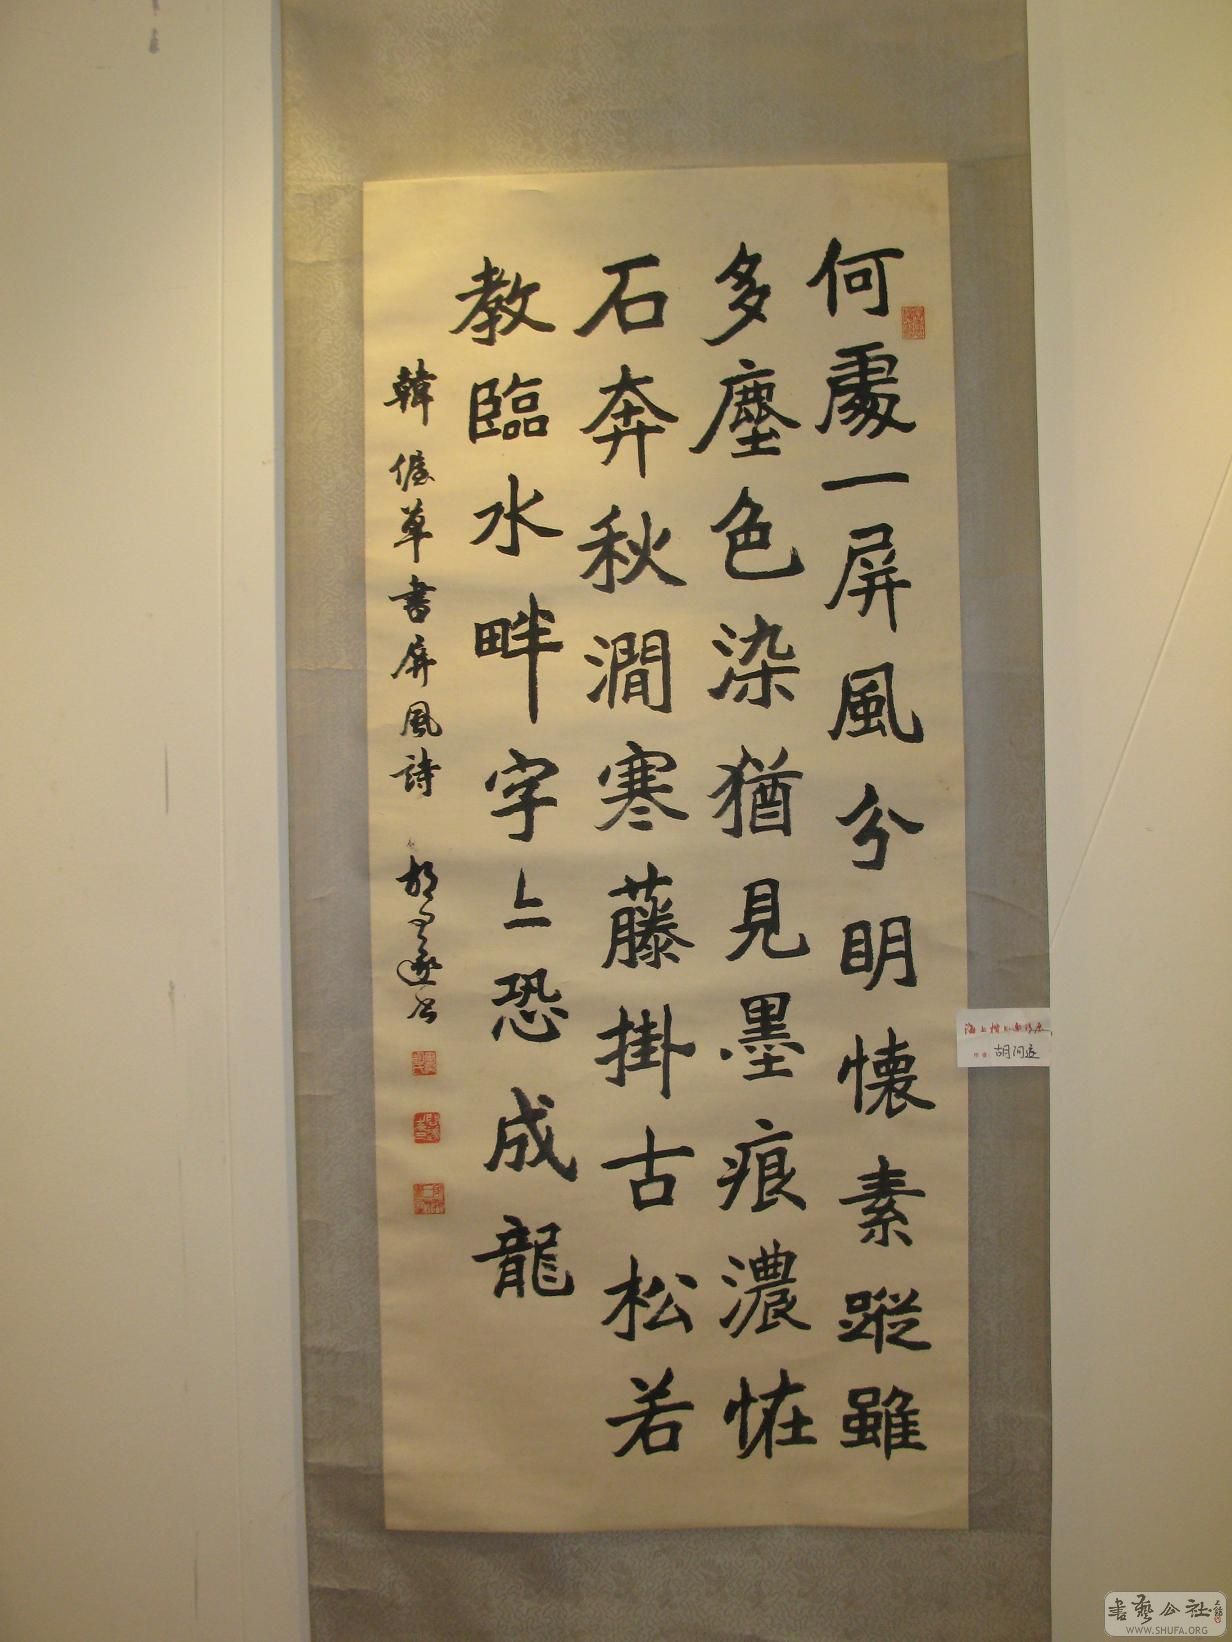 何處一屏風分明懷素蹤雖
多塵色染猶見墨痕濃恠
石奔秋澗寒藤掛古松若
教臨水畔字〻恐成龍
韓偓草書屏風詩 胡問遂書
海上
作者：胡问遂
書藝公社
WWW.SHUFA.ORG